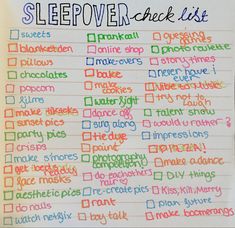 SLEEPOVER check list
sweets
blanket den
pillows
chocolates
popcorn
films
make
sunset pics
party pies
crisps
make s'mores
get ready
face masks
aesthetic pics
do nails
watch netflix
prank call
online shop
make-overs
bake
make cookies
water fight
dance off
sing along
tie dye
paint
photography competition
do eachothers hair
re-create pics
rant
boy talk
guessing games
photo roulette
story times
never have i ever
try not to laugh
talent show
would u rather?
impressions
make a dance
DIY things
Kiss, Kill, Marry
plan future
make boomerangs